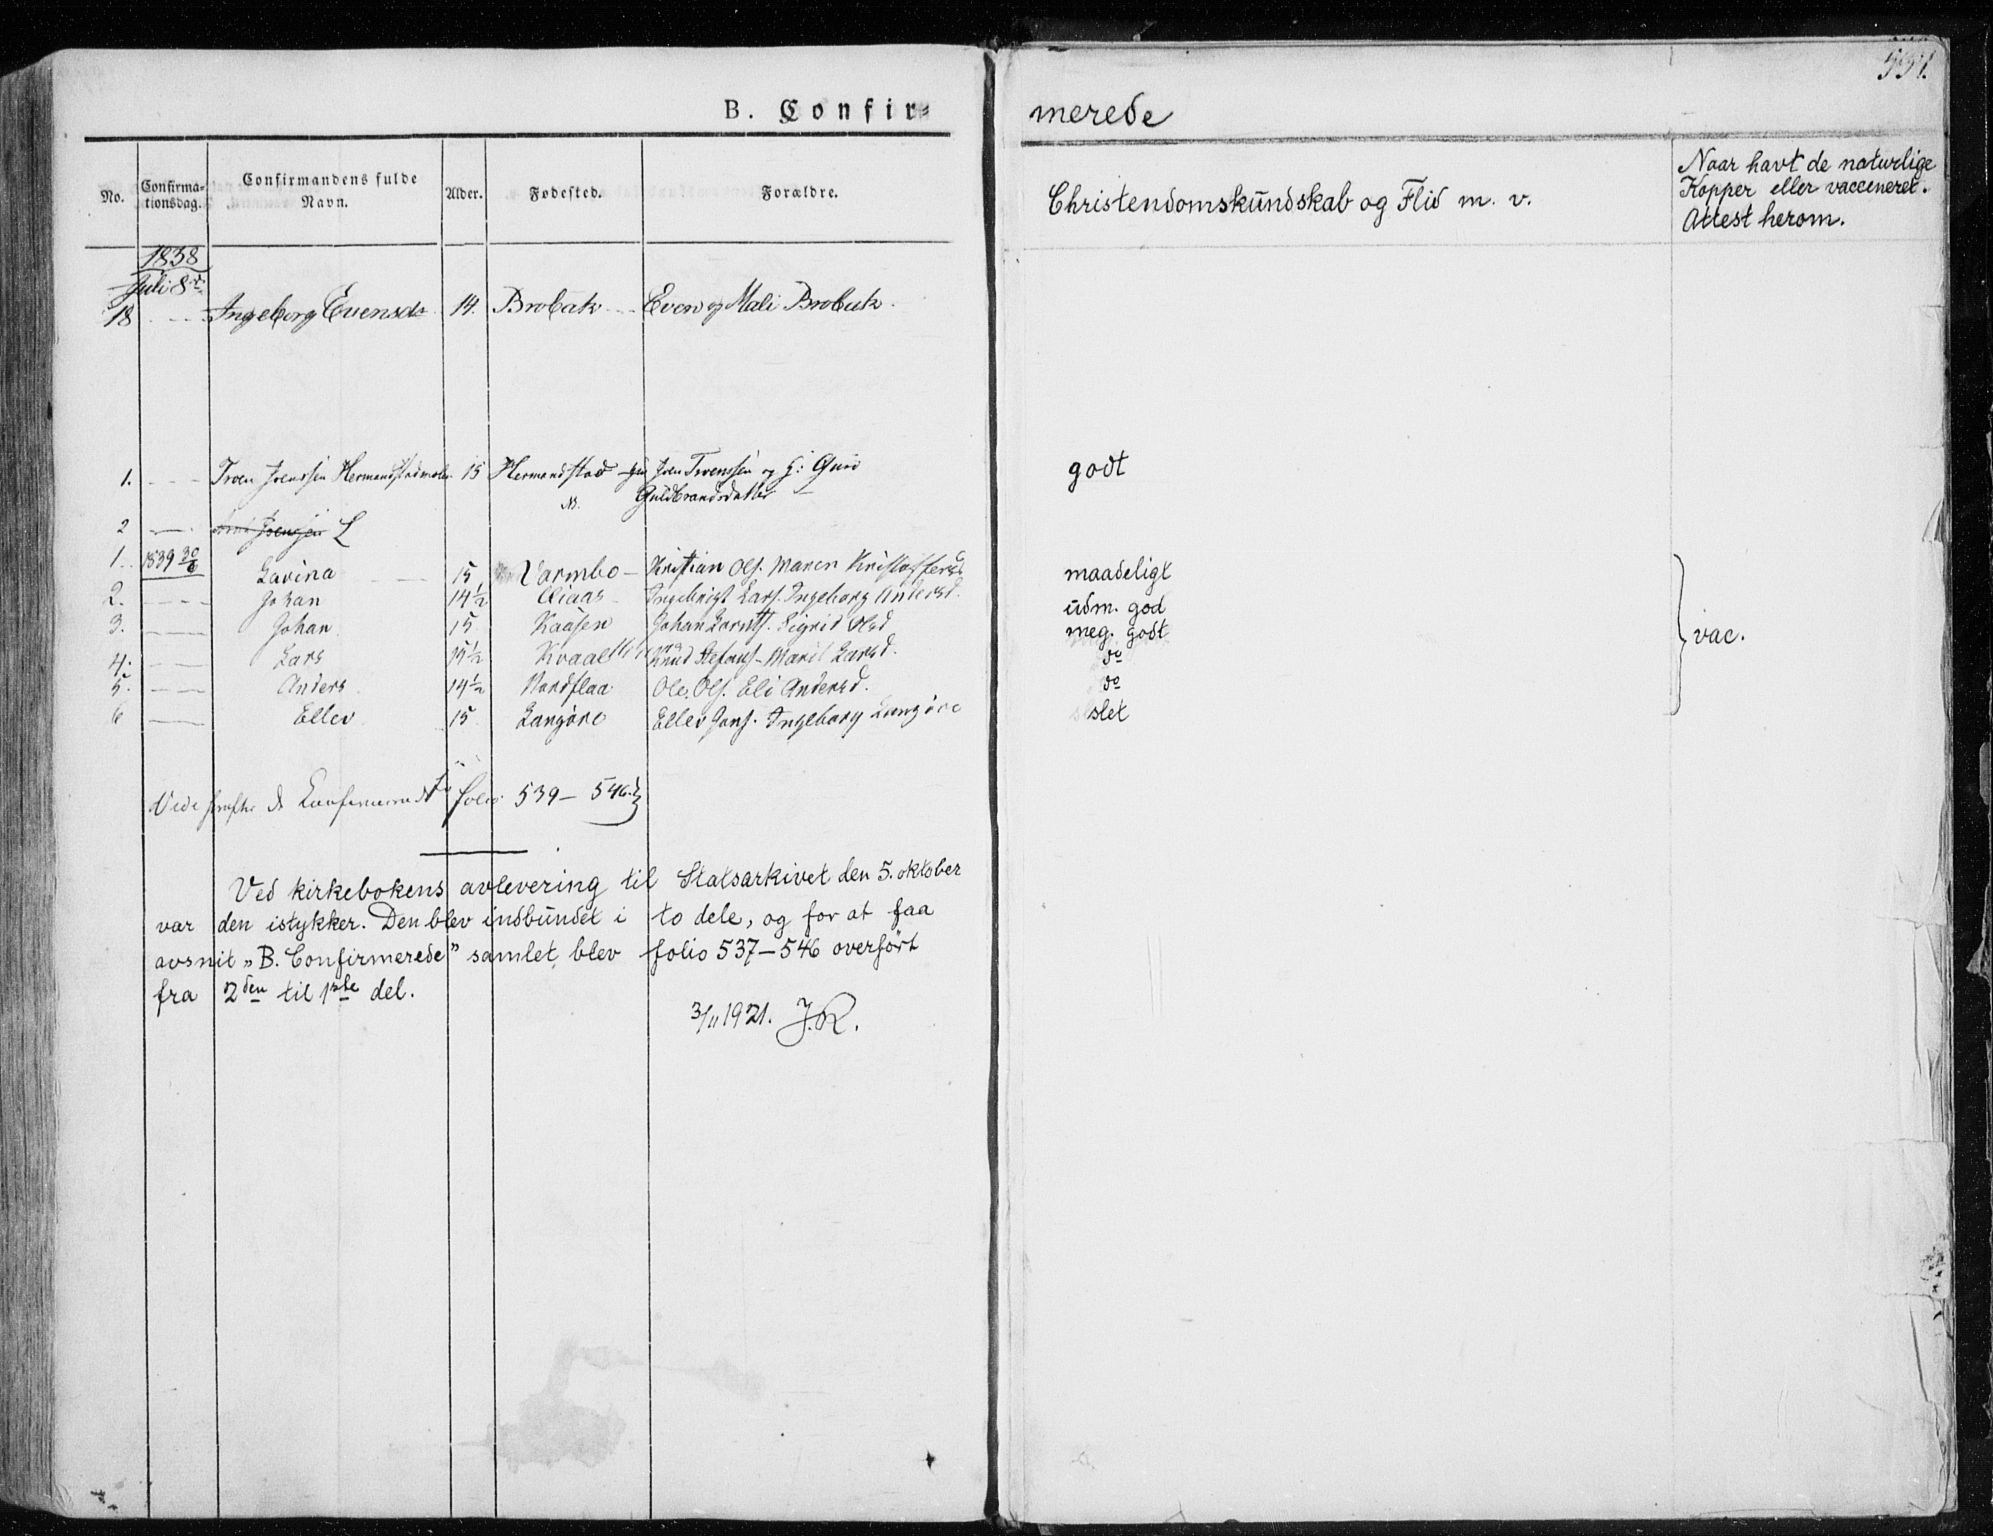 B. Confir=
merede
No.
Confirma-
tionsdag.
Confirmandens fulde
Navn.
Alder.
Fødested.
Forældre.
Christendomskundskab og Flid m. v.
Naar havt de naturlige
Kopper eller vacceneret.
Attest herom.
1838
Juli 8de
18 Ingeborg Evensdr 14. Brobak Even og Mali Brobak
1. 15 Hermandstad Joen og
Guldbrandsdatter godt
2
1. 1839 30/6 Lavina 15 Varmbo Kristian Ols. Maren Kristoffersd. maadeligt
2. Johan 14½ Ingebrigt Lars. Ingeborg Andersd. udm. god
3. Johan 15 Kaasen Johan Sigrid Olsd meg. godt vac.
4. Lars 15½ Kvaal Knud Marit Larsd. do
5. Anders 14½ Nordflaa Ole Ols. Eli Andersd. do
6 Ellev 15 Langøre Ellev Jons. Ingeborg Langøre slet
Vide folio 539 – 546.
Ved kirkebokens avlevering til Statsarkivet den 5. oktober
var den istykker. Den blev indbundet i to dele, og for at faa
avsnit „B. Confirmerede” samlet, blev folio 537–546 overført
fra 2den til 1ste del.
3/11 1921. J.R.